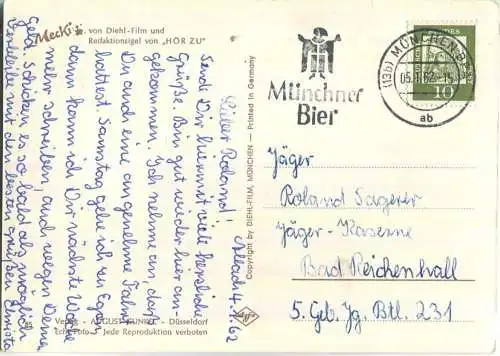 Mecki von Diehl-Film und
Redaktionsigel von „HÖR ZU"
Allach 4.1.62
Lieber Roland!
Sende Dir hiermit viele herzliche
Grüße. Bin gut wieder hier an-
gekommen. Ich nehme an daß
Du auch eine angenehme Fahrt
hattest. Samstag gehe ich zu
dann kann ich Dir nächste Woche
mehr schreiben, auch wegen Deinem
Geld. Schicken es so bald als möglich
Verbleibe mit den besten Grüßen
Verlag - AUGUST GUNKEL - Düsseldorf
Echt Foto - Jede Reproduktion verboten
Copyright by DIEHL-FILM, MÜNCHEN — Printed in Germany
Agfa
Münchner
Bier
(13b) MÜNCHEN
05.1.62-15
ab
10
Jäger
Roland Sagerer
Jäger-Kaserne
Bad Reichenhall
5. Geb. Jg. Btl. 231